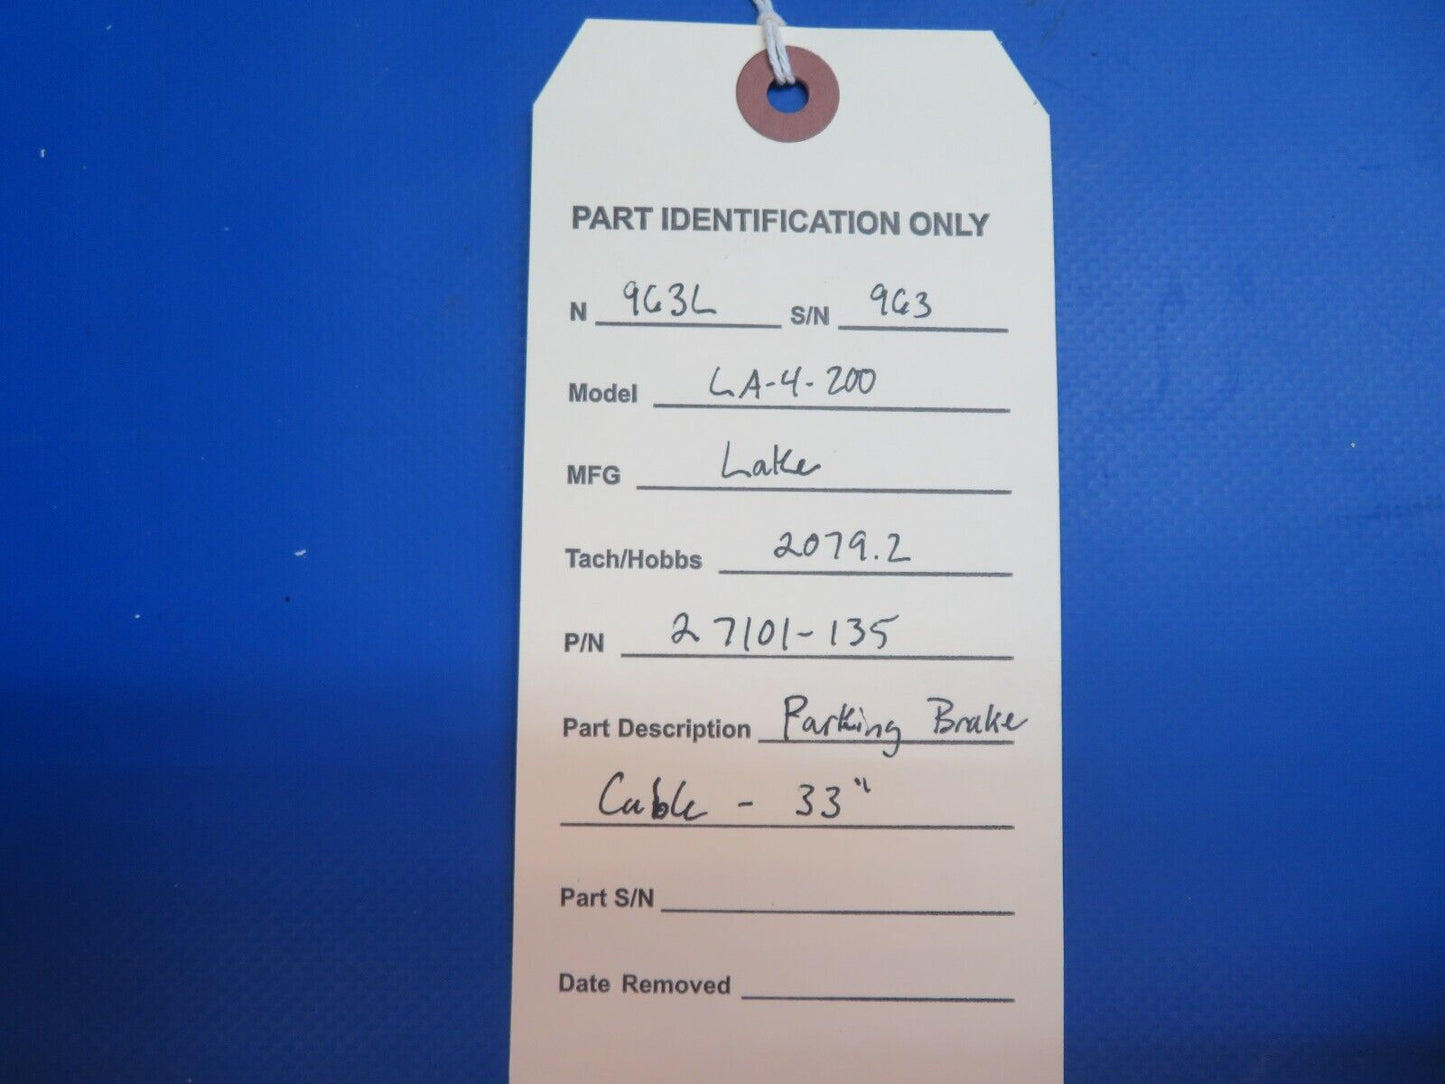 PART IDENTIFICATION ONLY
N 963L S/N 963
Model LA-4-200
MFG Lake
Tach/Hobbs 2079.2
P/N 27101-135
Part Description Parking Brake
Cable - 33"
Part S/N
Date Removed